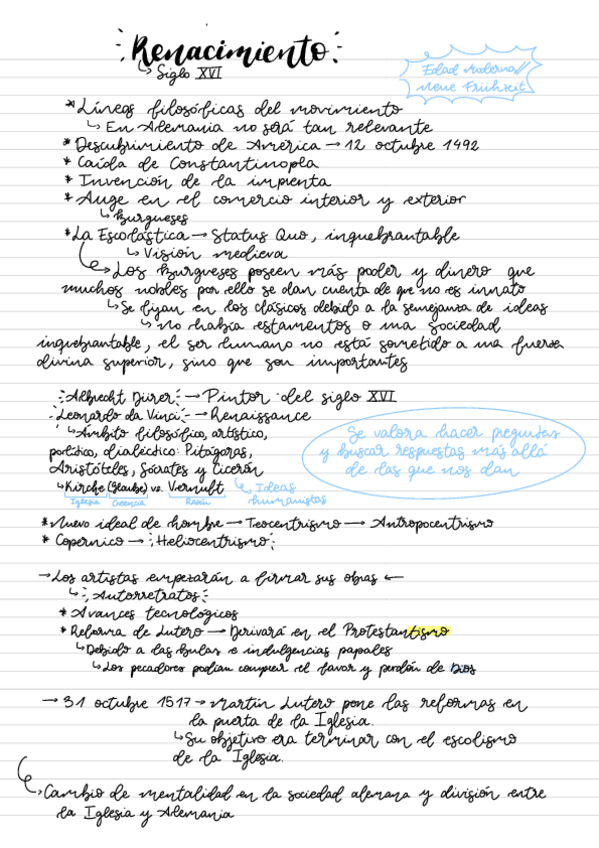 Renacimiento
↳ Siglo XVI
Edad Moderna//
Neue Frühzeit
* Líneas filosóficas del movimiento
↳ En Alemania no será tan relevante
* Descubrimiento de América → 12 octubre 1492
* Caída de Constantinopla
* Invención de la imprenta
* Auge en el comercio interior y exterior
↳ Burgueses
* La Escolástica → Status Quo, inquebrantable
↳ Visión medieva
↳ Los Burgueses poseen más poder y dinero que
muchos nobles por ello se dan cuenta de que no es innato
↳ Se fijan en los clásicos debido a la semejanza de ideas
↳ no había estamentos o una sociedad
inquebrantable, el ser humano no está sometido a una fuerza
divina superior, sino que son importantes
Albrecht Dürer → Pintor del siglo XVI
Leonardo da Vinci → Renaissance
↳ Ámbito filosófico, artístico,
poético, dialéctico: Pitágoras,
Aristóteles, Sócrates y Cicerón
↳ Kirche (Glaube) vs. Vernuft ↳ Ideas
humanistas
Iglesia Creencia Razón
Se valora hacer preguntas
y buscar respuestas más allá
de las que nos dan
* Nuevo ideal de hombre → Teocentrismo → Antropocentrismo
* Copernico → Heliocentrismo
→ Los artistas empezarán a firmar sus obras ←
↳ Autorretratos
* Avances tecnológicos
* Reforma de Lutero → Derivará en el Protestantismo
↳ Debido a las bulas e indulgencias papales
↳ Los pecadores podían comprar el favor y perdón de Dios
→ 31 octubre 1517 → Martín Lutero pone las reformas en
la puerta de la Iglesia.
↳ Su objetivo era terminar con el escolismo
de la Iglesia.
↳ Cambio de mentalidad en la sociedad alemana y división entre
la Iglesia y Alemania